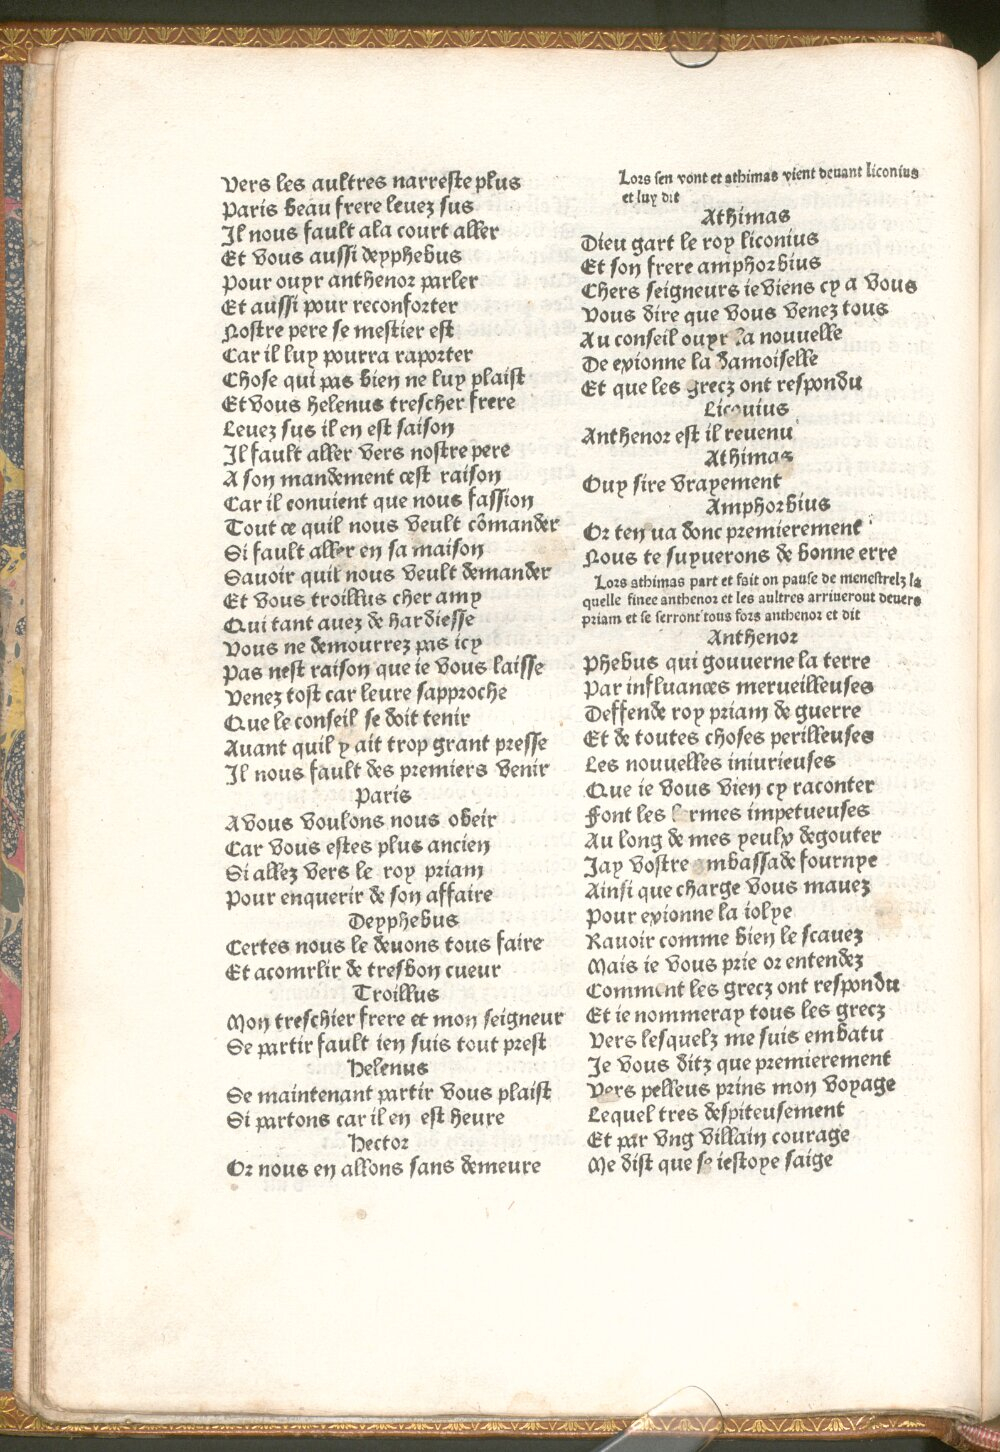 Vers les aultres narreste plus
Paris beau frere levez sus
Il nous fault ala court aller
Et vous aussi deyphebus
Pour ouyr anthenor parler
Et aussi pour reconforter
Nostre pere se mestier est
Car il luy pourra raporter
Chose qui pas bien ne luy plaist
Et vous helenus trescher frere
Levez sus il en est saison
Il fault aller vers nostre pere
A son mandement cest raison
Car il convient que nous fassion
Tout ce quil nous veult cõmander
Si fault aller en sa maison
Savoir quil nous veult demander
Et vous troillus cher amy
Qui tant avez de hardiesse
Vous ne demourrez pas icy
Pas nest raison que ie vous laisse
Venez tost car leure sapproche
Que le conseil se doit tenir
Avant quil y ait trop grant presse
Il nous fault des premiers venir
Paris
A vous voulons nous obeir
Car vous estes plus ancien
Si allez vers le roy priam
Pour enquerir de son affaire
Deyphebus
Certes nous le devons tous faire
Et acomrlir de tresbon cueur
Troillus
Mon treschier frere et mon seigneur
Se partir fault ien suis tout prest
Helenus
Se maintenant partir vous plaist
Si partons car il en est heure
Hector
Or nous en allons sans demeure
Lors sen vont et athimas vient devant liconius
et luy dit
Athimas
Dieu gart le roy liconius
Et son frere amphorbius
Chers seigneurs ie viens cy a vous
Vous dire que vous venez tous
Au conseil ouyr la nouvelle
De exionne la damoiselle
Et que les grecz ont respondu
Liconius
Anthenor est il revenu
Athimas
Ouy sire vrayement
Amphorbius
Or ten va donc premierement
Nous te suyverons de bonne erre
Lors athimas part et fait on pause de menestrelz la
quelle finee anthenor et les aultres arriverout devers
priam et se serront tous fors anthenor et dit
Anthenor
Phebus qui gouverne la terre
Par influances merveilleuses
Deffende roy priam de guerre
Et de toutes choses perilleuses
Les nouvelles iniurieuses
Que ie vous vien cy raconter
Font les lermes impetueuses
Au long de mes yeulx degouter
Jay vostre ambassade fournye
Ainsi que charge vous mavez
Pour exionne la iolye
Ravoir comme bien le scavez
Mais ie vous prie or entendez
Comment les grecz ont respondu
Et ie nommeray tous les grecz
Vers lesquelz me suis embatu
Je vous ditz que premierement
Vers pelleus prins mon voyage
Lequel tres despiteusement
Et par ung villain courage
Me dist que se iestoye saige